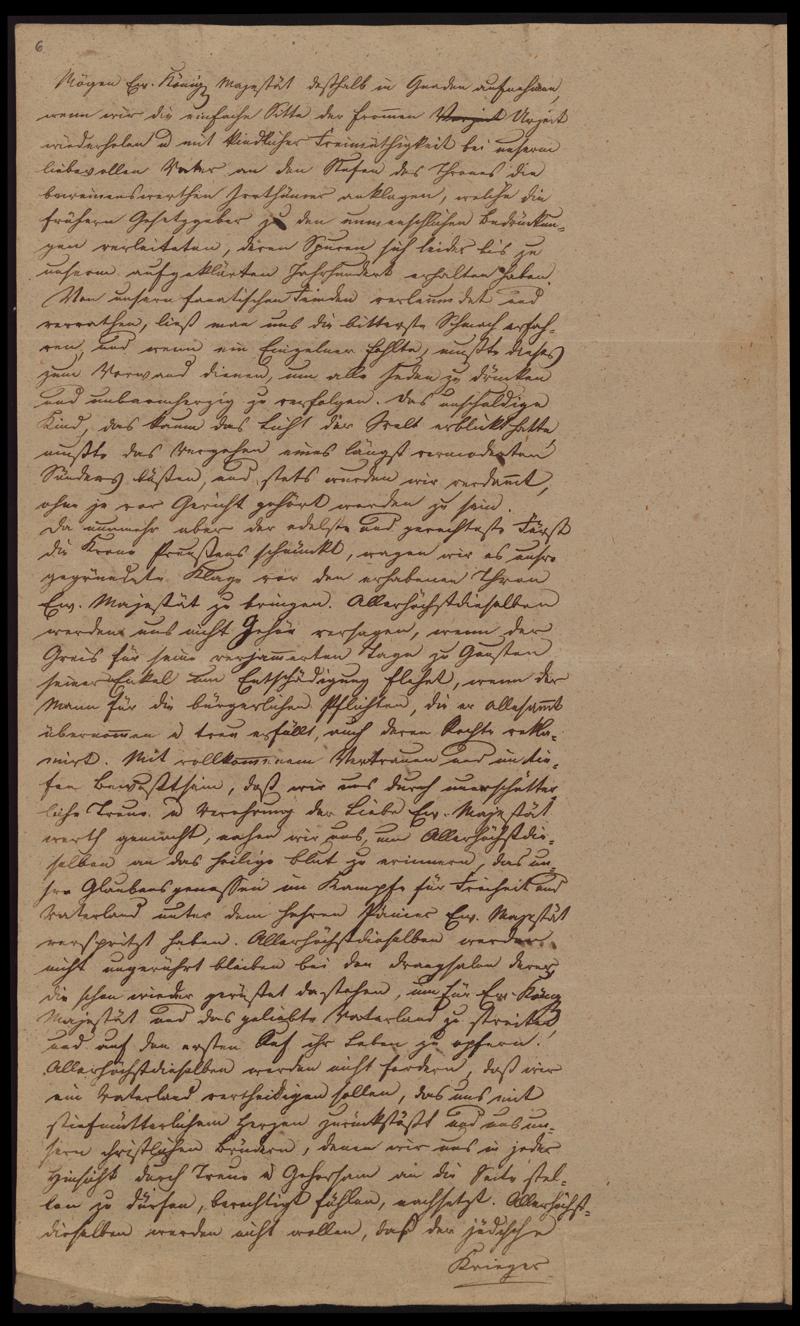 6
Mögen Ew. Königl Majestät deßhalb in Gnaden aufnehmen,
wenn wir die einfache Sitte der frommen Vorzeit Urzeit
wiederholen u mit kindlicher Freimüthigkeit bei unserm
liebevollen Vater an den Stufen des Thrones die
beweinenswerthen Irrthümer anklagen, welche die
frühern Gesetzgeber zu den unmenschlichen Bedrückun-
gen verleiteten, deren Spuren sich leider bis zu
unserm aufgeklärten Jahrhundert erhalten haben.
Von unsern fanatischen Feinden verleumdet und
verrathen, ließ man uns die bitterste Schmach erfah-
ren, und wenn ein Einzelner fehlte, mußte dieses
zum Vorwand dienen, um alle Juden zu drücken
und unbarmherzig zu verfolgen. Das unschuldige
Kind, das kaum das Licht der Welt erblickt hatte,
mußte das Vergehen eines längst vermoderten
Sünders büßen, und stets wurden wir verdammt,
ohne je vor Gericht gehört worden zu sein.
Da nunmehr aber der edelste und gerechteste Fürst
die Krone Preußens schmückt, wagen wir es unsre
gegründete Klage vor den erhabenen Thron
Ew. Majestät zu bringen. Allerhöchstdieselben
werden uns nicht Gehör versagen, wenn der
Greis für seine verjammerten Tage zu Gunsten
seiner Enkel um Entschädigung flehet, wenn der
Mann für die bürgerlichen Pflichten, die er allesammt
übernommen u treu erfüllt, auch deren Rechte rekla-
mirt. Mit vollkommenem Vertrauen und im tie-
fen Bewußtsein, daß wir uns durch unerschütter
liche Treue u Verehrung der Liebe Ew. Majestät
werth gemacht, nahen wir uns, um Allerhöchstdie-
selben an das heilige Blut zu erinnern, das un-
sre Glaubensgenossen im Kampfe für Freiheit und
Vaterland unter dem hehren Panier Ew. Majestät
verspritzt haben. Allerhöchstdieselben werden
nicht ungerührt bleiben bei den Drangsalen derer,
die schon wieder gerüstet dastehen, um für Ew. Königl
Majestät und das geliebte Vaterland zu streiten,
und auf den ersten Ruf ihr Leben zu opfern.
Allerhöchstdieselben werden nicht fordern, daß wir
ein Vaterland vertheidigen sollen, das uns mit
stiefmütterlichem Herzen zurückstößt und uns un-
sern christlichen Brüdern, denen wir uns in jeder
Hinsicht durch Treue u Gehorsam an die Seite stel-
len zu dürfen, berechtigt fühlen, nachsetzt. Allerhöchst-
dieselben werden nicht wollen, daß der jüdische
Krieger